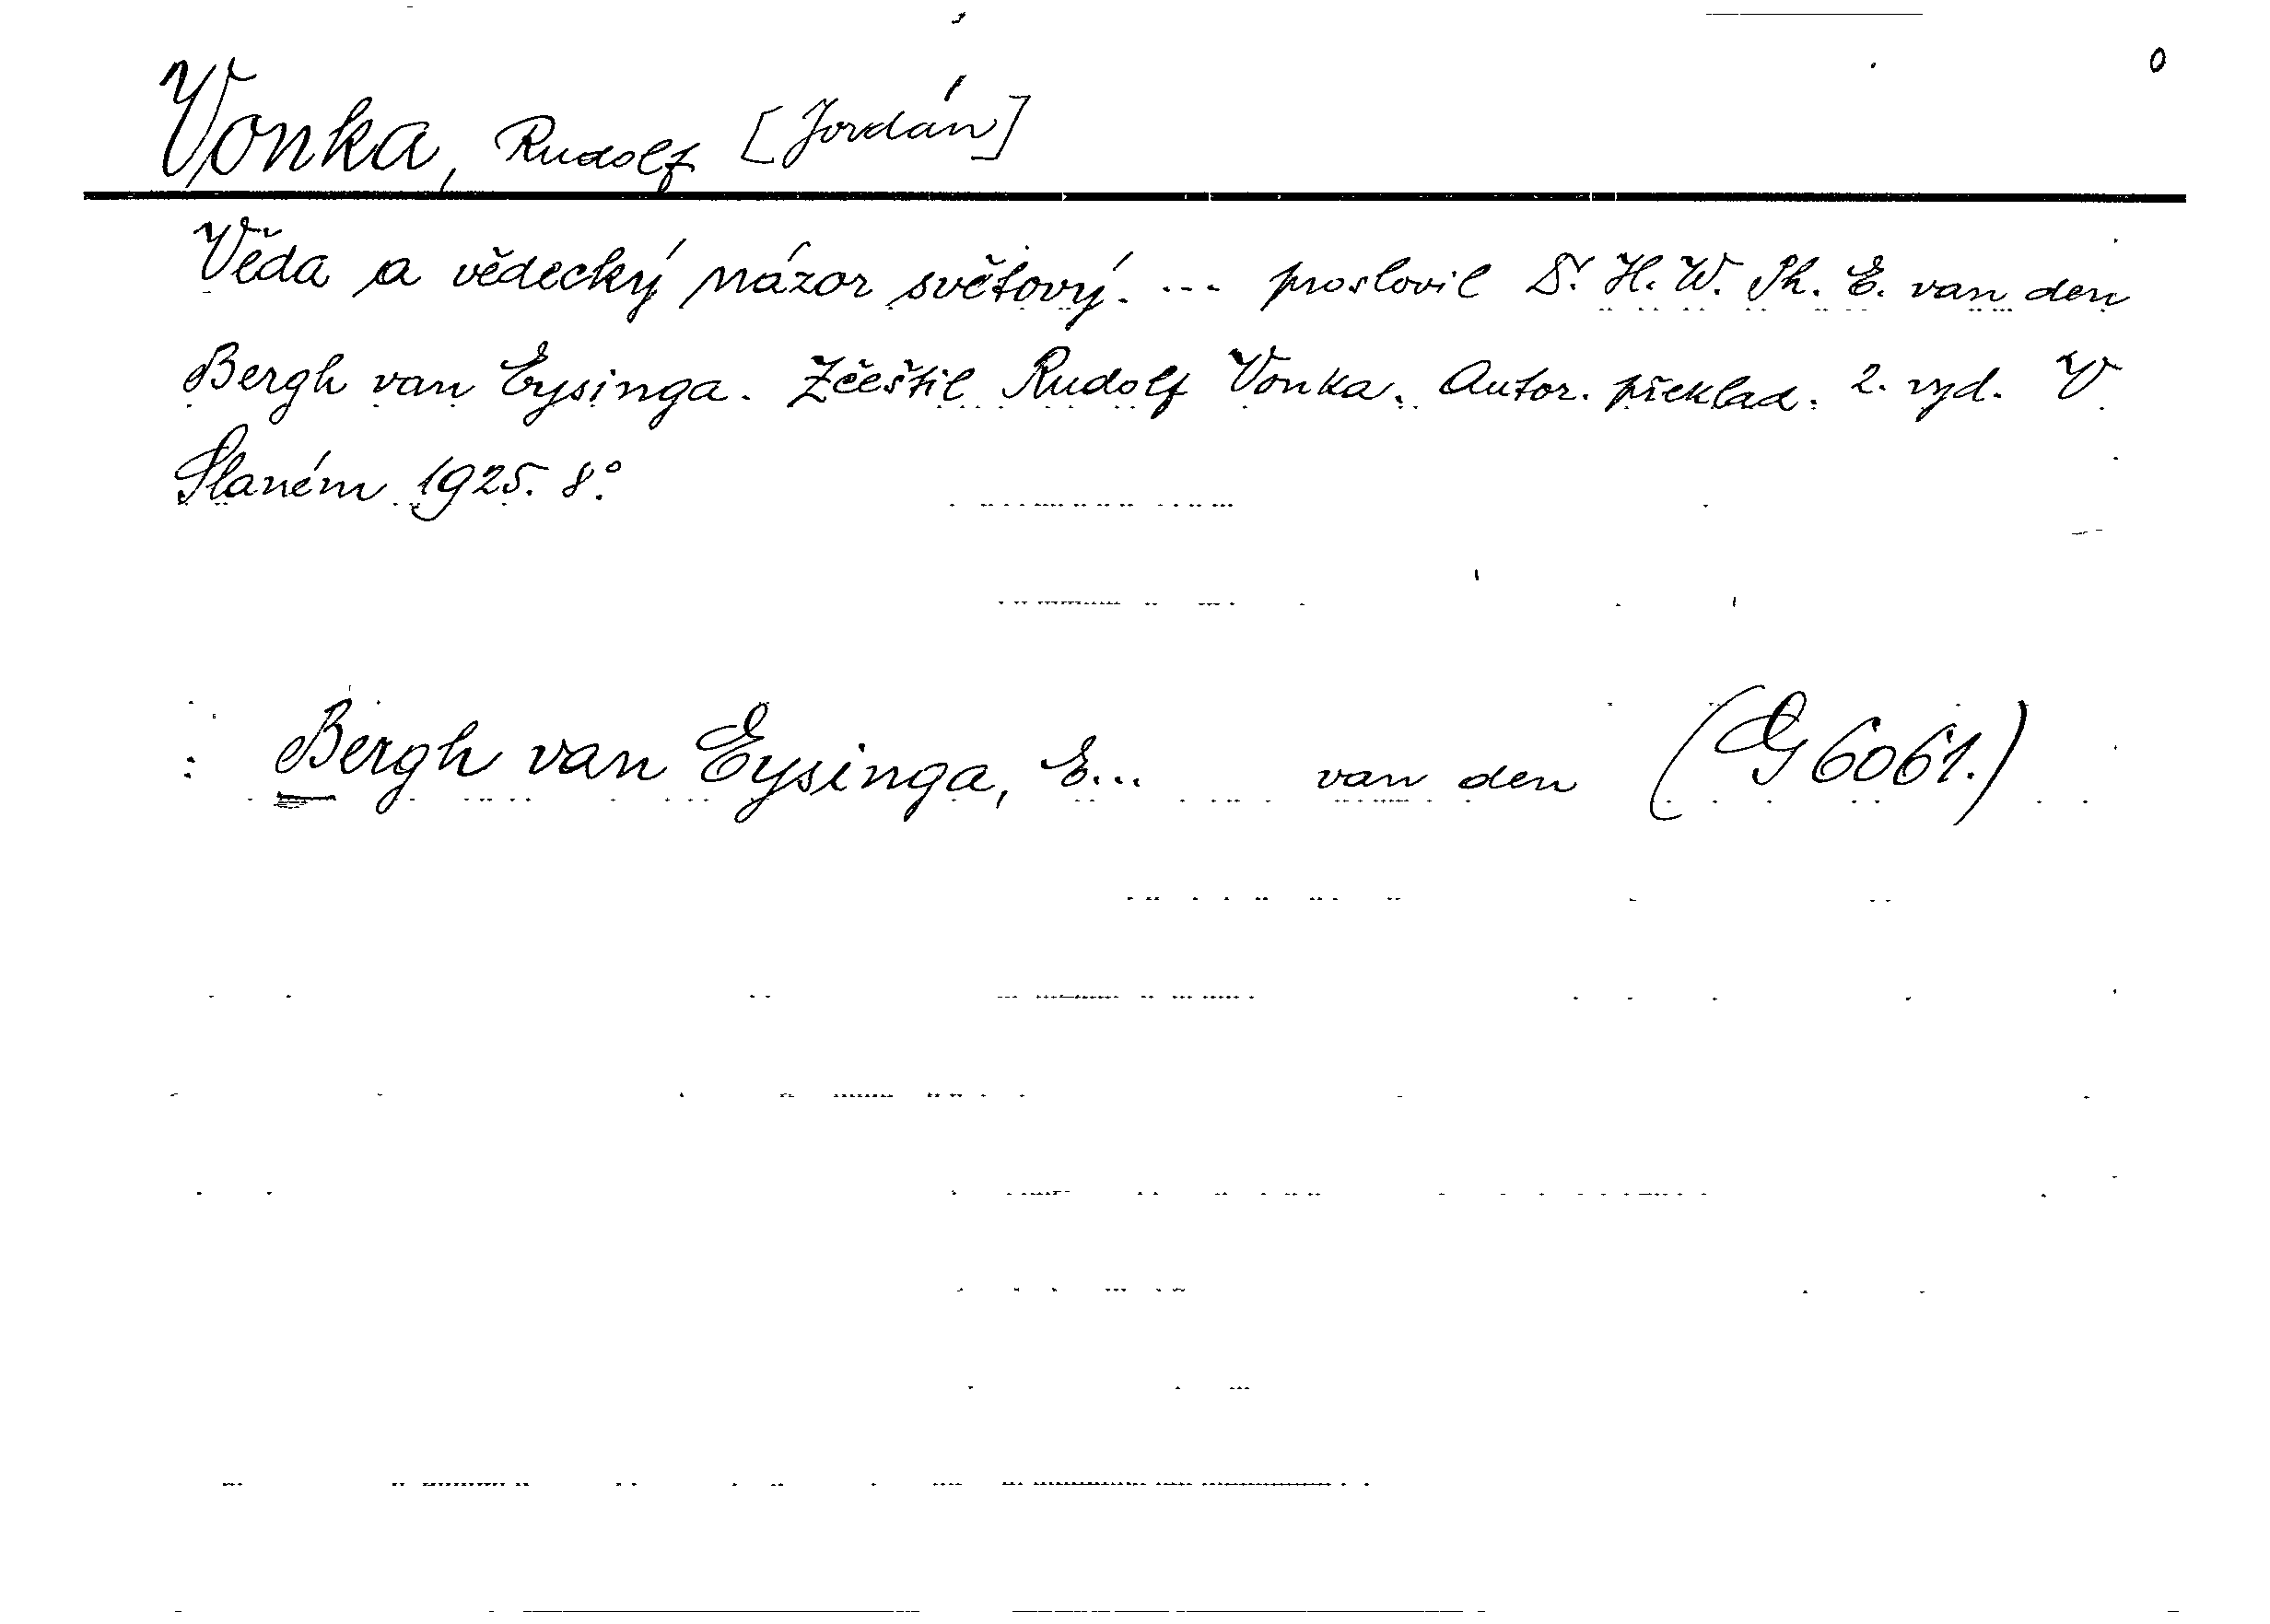 Vonka, Rudolf [Jordán]
Věda a vědecký názor světový. ... proslovil Dr. H. W. Ph. E. van den
Bergh van Eysinga. Zčeštil Rudolf Vonka. Autor. překlad. 2. vyd. V
Slaném 1925. 8°.
Bergh van Eysinga, E... van den (G 6061.)